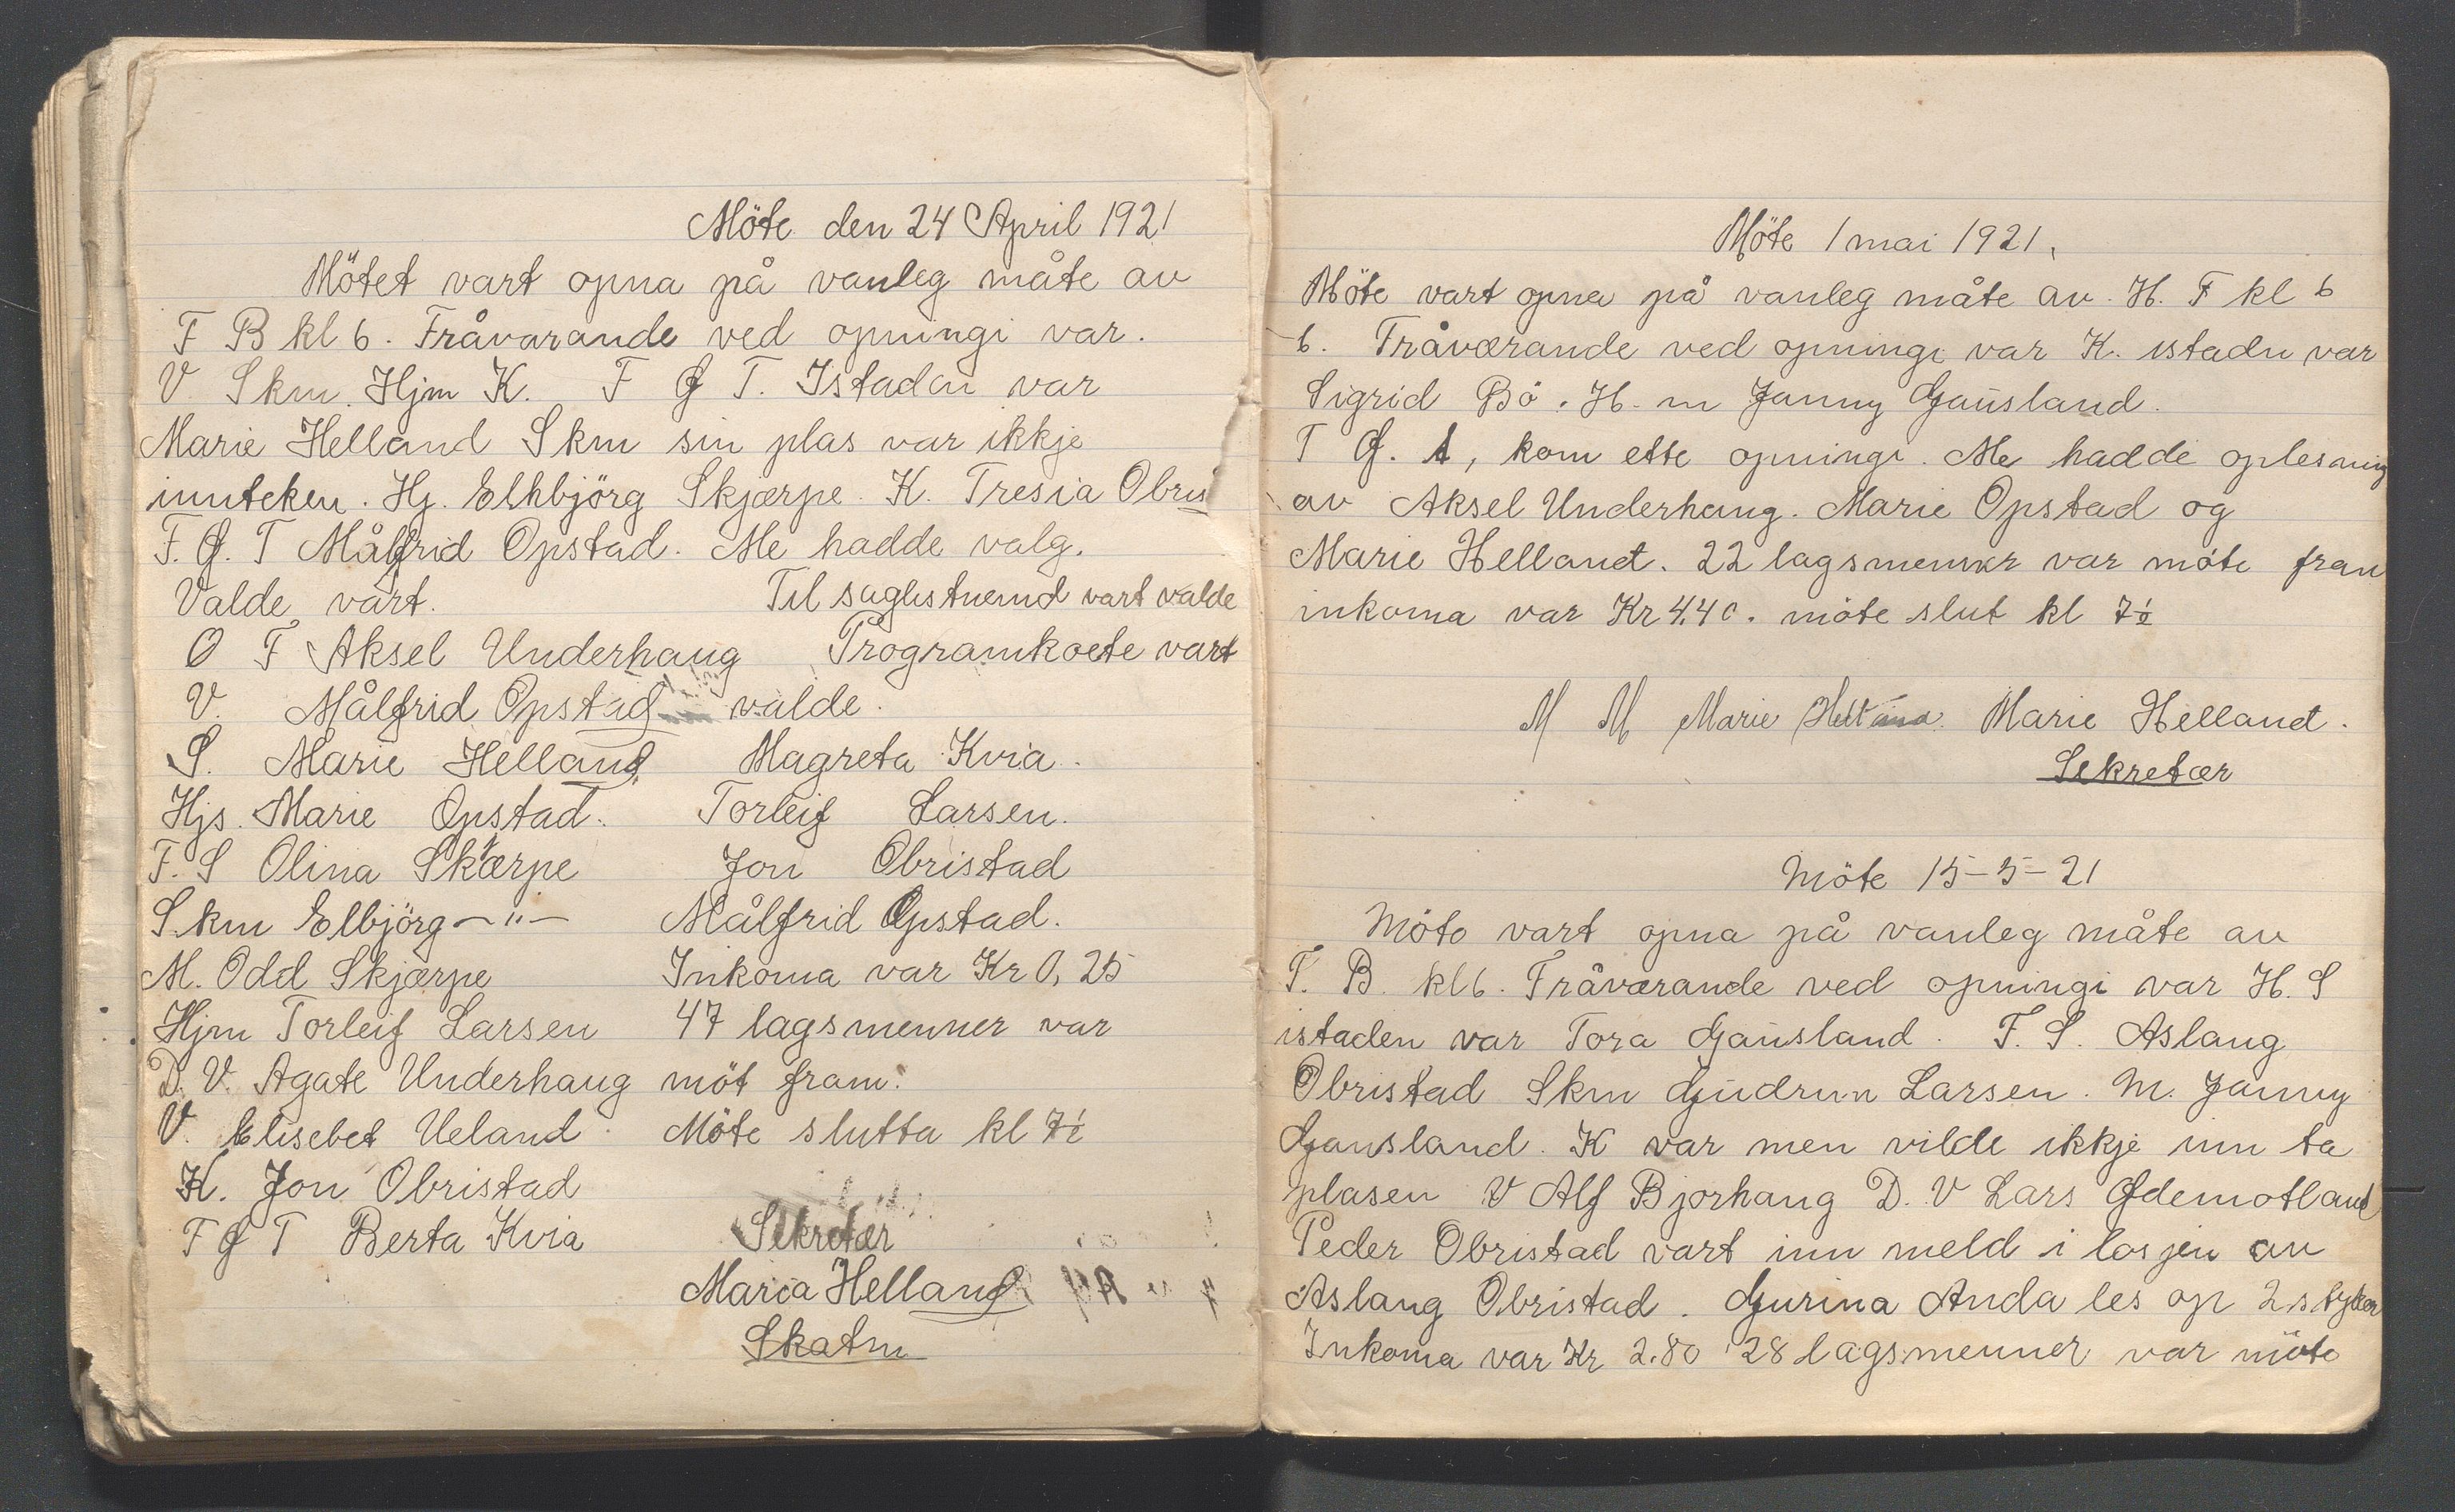 Möte den 24 April 1921
Mötet vart opna på vanleg måte av
F B kl 6. Fråvarande ved opningi var.
V. Skm. Hjm K. F G T. Istaden var
Marie Helland Skm sin plas var ikkje
innteken. Hj. Elkbjörg Skjærpe. K. Tresia Obris
F. G. T Målfrid Opstad. Me hadde valg.
Valde vart.
O F Aksel Underhaug
V. Målfrid Opstad
S. Marie Helland
Hjs. Marie Opstad.
F. S Olina Skærpe
Skm Elbjörg —"—
M. Odd Skjærpe
Hjm Torleif Larsen
D. V. Agate Underhaug
V. Elisebet Ueland
K. Jon Obristad
F G T Berta Kvia
Til vart valde
Programkoete vart
valde.
Magreta Kvia.
Torleif Larsen.
Jon Obristad
Målfrid Opstad.
Inkoma var Kr 0,25
47 lagsmenner var
möt fram.
Möte slutta kl 7½
Sekretær
Maria Helland
Skatm
Möte 1 mai 1921.
Möte vart opna på vanleg måte av. H. F kl 6
6. Fråværande ved opningi var K. istadn var
Sigrid Bö. H. m Janny Gausland.
T G. t, kom ette opningi. Me hadde oplesning
av Aksel Underhaug. Marie Opstad og
Marie Helland. 22 lagsmenner var möte fram
inkoma var Kr 4.40. möte slut kl 7½
M M Marie Helland Marie Helland.
Sekretær
Möte 15-5-21
Möto vart opna på vanleg måte av
F. B. kl 6. Fråværande ved opningi var H. S
istaden var Tora Gausland. F. S. Aslaug
Obristad Skm Gudrun Larsen. M. Janny
Gausland. K var men vilde ikkje inn ta
plasen V Alf Bjorhaug D. V Lars Gdemotland
Peder Obristad vart inn meld i losjen av
Aslaug Obristad. Gurina Anda les op 2 styker
Inkoma var Kr 2.80 28 lagsmenner var möto